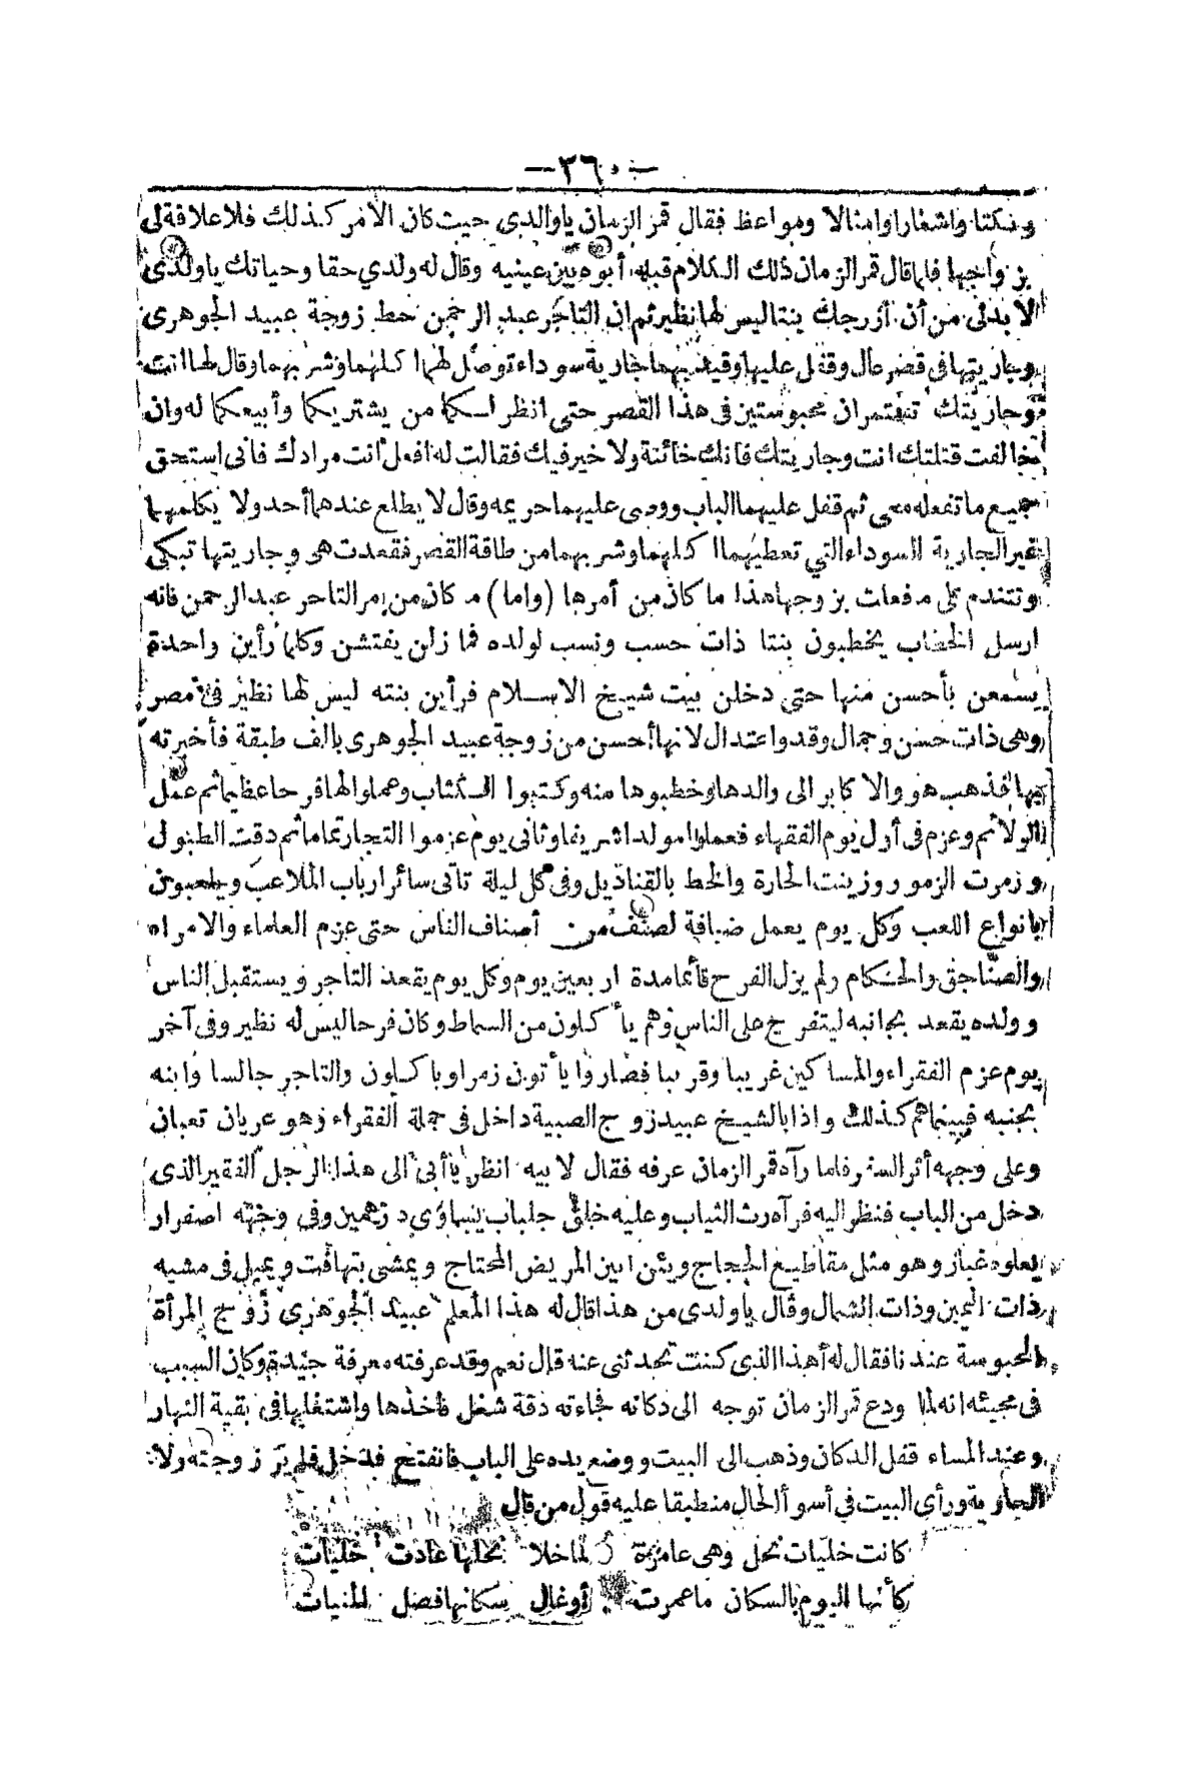 — ٣٦٠ —
ونكتا واشعارا وامثالا ومواعظ فقال قمر الزمان ياوالدى حيث كان الامر كذلك فلا علاقة لى
بزواجها فلما قال قمر الزمان ذلك الكلام قبله أبوه بين عينيه وقال له ولدي حقا وحياتك ياولدى
لا بدلى من أن أزوجك بنتا ليس لها نظير ثم ان التاجر عبد الرحمن حط زوجة عبيد الجوهرى
وجاريتها فى قصر عال وقفل عليها وقيد بهما جارية سوداء توصل لهما اكلهما وشربهما وقال لها انت
وجاريتك تستمران محبوستين فى هذا القصر حتى انظر لكما من يشتريكما وأبيعكما له وان
خالفت قتلتك انت وجاريتك فانك خائنة ولا خير فيك فقالت له افعل انت مرادك فانى استحق
جميع ما تفعله معى ثم قفل عليهما الباب ووصى عليهما حريمه وقال لا يطلع عندهما أحد ولا يكلمهما
غير الجارية السوداء التي تعطيهما اكلهما وشربهما من طاقة القصر فقعدت هى وجاريتها تبكى
وتتندم على ما فعلت بزوجها هذا ما كان من أمرها (واما) ما كان من امر التاجر عبد الرحمن فانه
ارسل الخطاب يخطبون بنتا ذات حسب ونسب لولده فما زلن يفتشن وكلما رأين واحدة
يسمعن بأحسن منها حتى دخلن بيت شيخ الاسلام فرأين بنته ليس لها نظير فى مصر
وهى ذات حسن وجمال وقد واعتدال لانها أحسن من زوجة عبيد الجوهرى بالف طبقة فأخبرته
بها فذهب هو والاكابر الى والدها وخطبوها منه وكتبوا الكتاب وعملوا لها فرحا عظيما ثم عمل
الولائم وعزم فى أول يوم الفقهاء فعملوا مولدا شريفا وثانى يوم عزموا التجار تماما ثم دقت الطبول
وزمرت الزمور وزينت الحارة والخط بالقناديل وفى كل ليلة تأتى سائر ارباب الملاعب ويلعبون
بانواع اللعب وكل يوم يعمل ضيافة لصنف من أصناف الناس حتى عزم العلماء والامراء
والصناجق والحكام ولم يزل الفرح قائما مدة اربعين يوم وكل يوم يقعد التاجر ويستقبل الناس
وولده يقعد بجانبه ليتفرج على الناس وهم يأكلون من السماط وكان فرحا ليس له نظير وفى آخر
يوم عزم الفقراء والمساكين غريبا وقريبا فصاروا يأتون زمرا وياكلون والتاجر جالسا وابنه
بجنبه فبينما هم كذلك واذا بالشيخ عبيد زوج الصبية داخل فى جملة الفقراء وهو عريان تعبان
وعلى وجهه أثر السفر فلما رآه قمر الزمان عرفه فقال لابيه انظر ياأبى الى هذا الرجل الفقير الذى
دخل من الباب فنظر اليه فرآه رث الثياب وعليه خلق جلباب يساوى درهمين وفى وجهه اصفرار
يعلوه غبار وهو مثل مقاطيع الحجاج ويئن انين المريض المحتاج ويمشى بتهافت ويميل فى مشيه
ذات اليمين وذات الشمال وقال ياولدى من هذا قال له هذا المعلم عبيد الجوهرى زوج المرأة
المحبوسة عندنا فقال له أهذا الذى كنت تحدثنى عنه قال نعم وقد عرفته معرفة جيدة وكان السبب
فى مجيئه انه لما ودع قمر الزمان توجه الى دكانه فجاءته دقة شغل فاخذها واشتغلها فى بقية النهار
وعند المساء قفل الدكان وذهب الى البيت ووضع يده على الباب فانفتح فدخل فلم ير زوجته ولا
الجارية ورأى البيت في أسوأ الحال منطبقا عليه قول من قال
كانت خليات نحل وهى عامرة لما خلا نحلها عادت خليات
كأنها اليوم بالسكان ما عمرت أو غال سكانها فضل المنيات